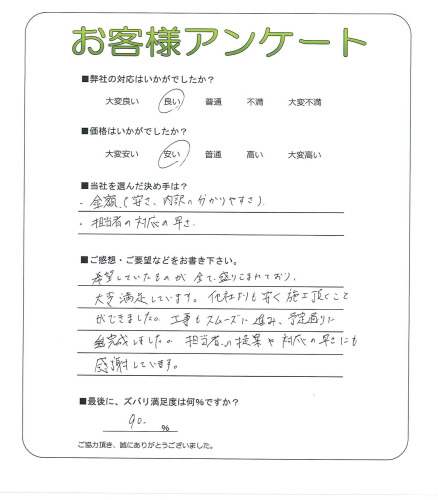 お客様アンケート
■弊社の対応はいかがでしたか？
大変良い 良い 普通 不満 大変不満
■価格はいかがでしたか？
大変安い 安い 普通 高い 大変高い
■当社を選んだ決め手は？
・金額（安さ、内訳の分かりやすさ）
・担当者の対応の早さ
■ご感想・ご要望などをお書き下さい。
希望していたものが全て盛りこまれており、
大変満足しています。他社よりも安く施工頂くこと
ができました。工事もスムーズに進み、予定通りに
完成しました。担当者の提案や対応の早さにも
感謝しています。
■最後に、ズバリ満足度は何％ですか？
90. %
ご協力頂き、誠にありがとうございました。